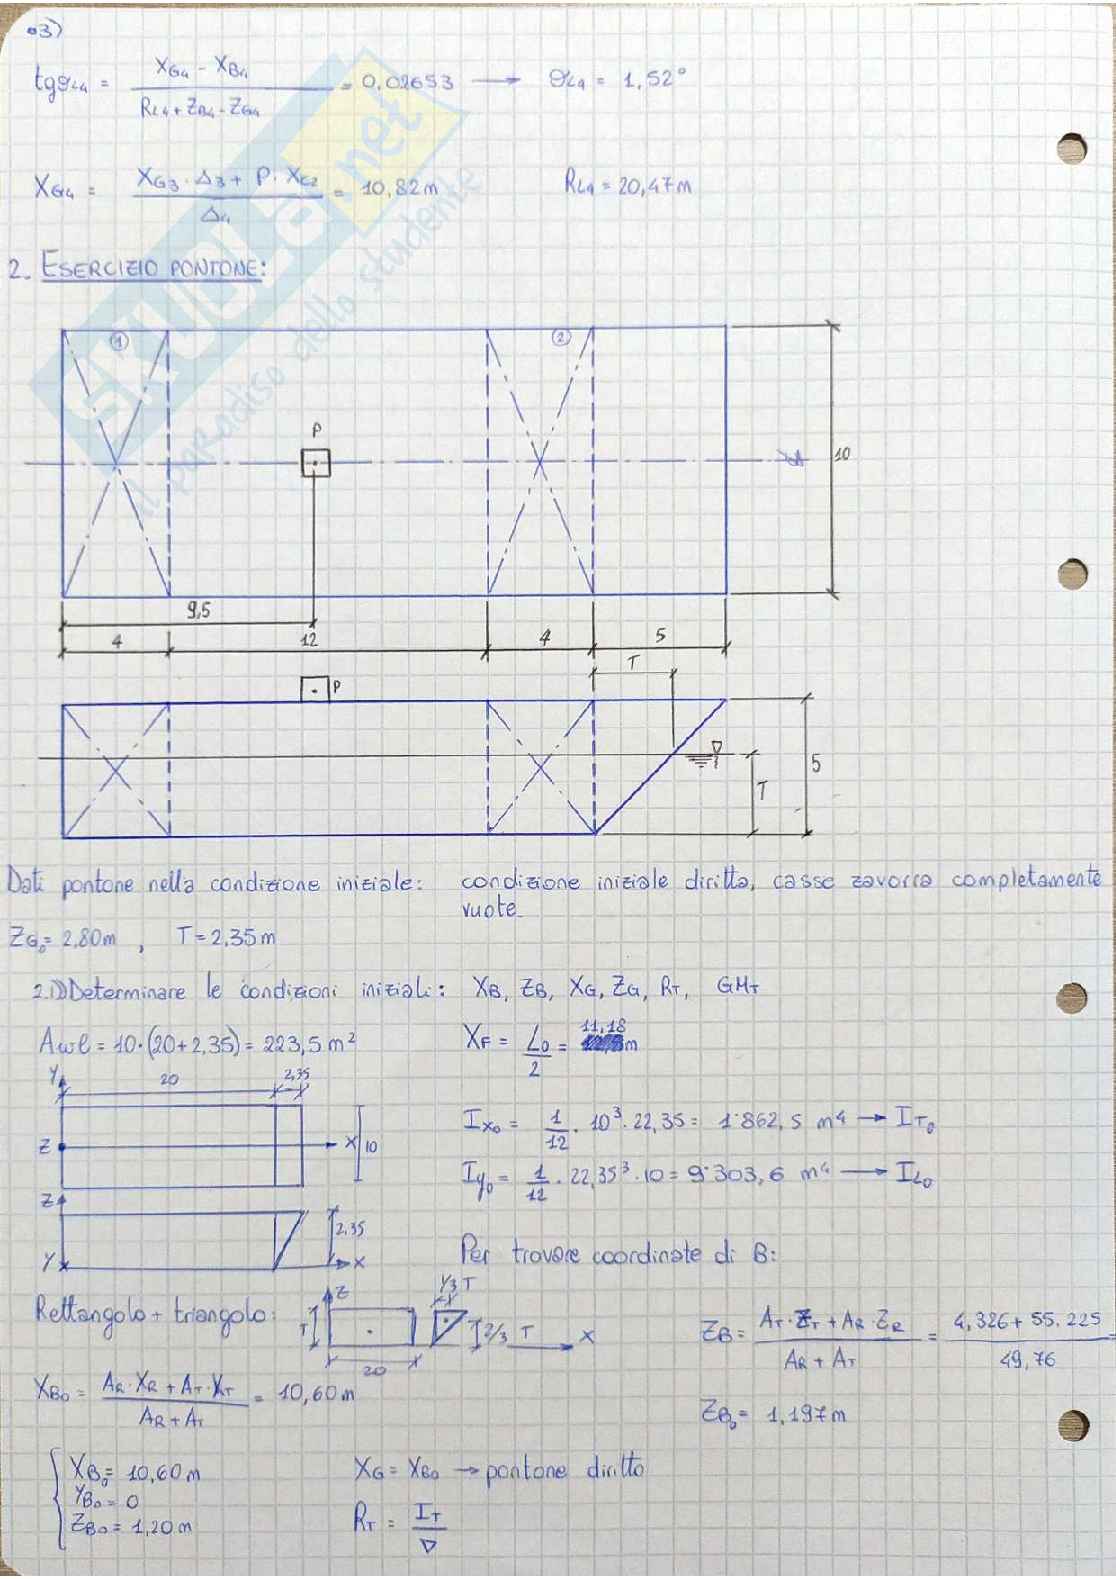 03)
tgθL4 = (XG4 - XB4) / (RL4 + ZB4 - ZG4) = 0,02653 → θL4 = 1,52°
XG4 = (XG3 · Δ3 + P · XC2) / Δ4 = 10,82 m RL4 = 20,47 m
SKUOLA.net
il paradiso dello studente
2. ESERCIZIO PONTONE:
1 2
P
10
9,5
4 12 4 5
T
P
5
T
Dati pontone nella condizione iniziale: condizione iniziale diritta, casse zavorra completamente
vuote.
ZG0 = 2,80 m , T = 2,35 m
2.1) Determinare le condizioni iniziali: XB, ZB, XG, ZG, RT, GMT
Awl = 10·(20+2,35) = 223,5 m² XF = L0/2 = 11,18 m
Y 20 2,35
Z X 10
Ix0 = 1/12 · 10³ · 22,35 = 1'862,5 m⁴ → IT0
Iy0 = 1/12 · 22,35³ · 10 = 9'303,6 m⁴ → IL0
Z
2,35
Y X
Per trovare coordinate di B:
Rettangolo + triangolo: Z T 20 1/3 T 2/3 T X
ZB = (AT · ZT + AR · ZR) / (AR + AT) = (4,326 + 55.225) / 49,76 =
XB0 = (AR · XR + AT · XT) / (AR + AT) = 10,60 m
ZB0 = 1,197 m
XB0 = 10,60 m
YB0 = 0
ZB0 = 1,20 m
XG = XB0 → pontone diritto
RT = IT / ∇